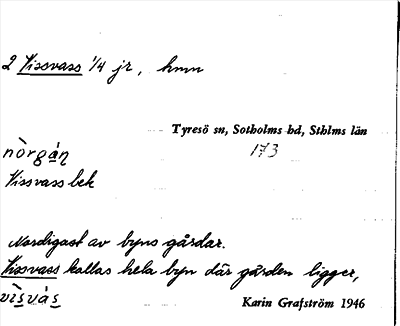 2 Vissvass 1/4 jr, hmn
Tyresö sn, Sotholms hd, Sthlms län
173
nòrgán
Vissvass bek
Nordigast av byns gårdar.
Vissvass kallas hela byn där gården ligger,
vìsvás
Karin Grafström 1946